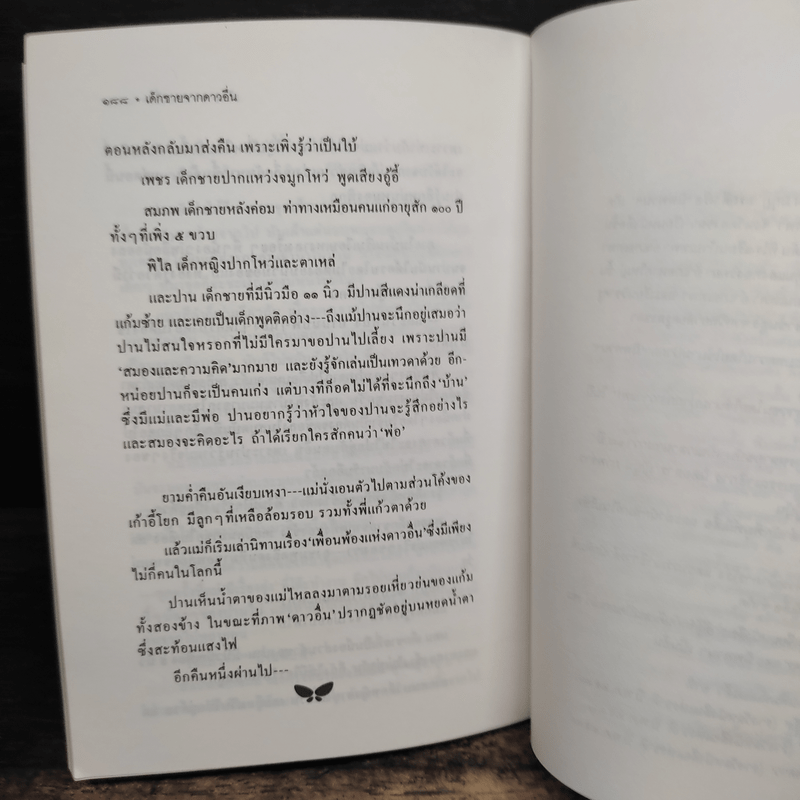 ๑๘๘ • เด็กชายจากดาวอื่น
ตอนหลังกลับมาส่งคืน เพราะเพิ่งรู้ว่าเป็นใบ้
เพชร เด็กชายปากแหว่งจมูกโหว่ พูดเสียงอู้อี้
สมภพ เด็กชายหลังค่อม ท่าทางเหมือนคนแก่อายุสัก ๑๐๐ ปี
ทั้งๆ ที่เพิ่ง ๕ ขวบ
พิไล เด็กหญิงปากโหว่และตาเหล่
และปาน เด็กชายที่มีนิ้วมือ ๑๑ นิ้ว มีปานสีแดงน่าเกลียดที่
แก้มซ้าย และเคยเป็นเด็กพูดติดอ่าง---ถึงแม้ปานจะนึกอยู่เสมอว่า
ปานไม่สนใจหรอกที่ไม่มีใครมาขอปานไปเลี้ยง เพราะปานมี
‘สมองและความคิด’ มากมาย และยังรู้จักเล่นเป็นเทวดาด้วย อีก-
หน่อยปานก็จะเป็นคนเก่ง แต่บางทีก็อดไม่ได้ที่จะนึกถึง ‘บ้าน’
ซึ่งมีแม่และมีพ่อ ปานอยากรู้ว่าหัวใจของปานจะรู้สึกอย่างไร
และสมองจะคิดอะไร ถ้าได้เรียกใครสักคนว่า ‘พ่อ’
ยามค่ำคืนอันเงียบเหงา---แม่นั่งเอนตัวไปตามส่วนโค้งของ
เก้าอี้โยก มีลูกๆ ที่เหลือล้อมรอบ รวมทั้งพี่แก้วตาด้วย
แล้วแม่ก็เริ่มเล่านิทานเรื่อง ‘เพื่อนพ้องแห่งดาวอื่น’ ซึ่งมีเพียง
ไม่กี่คนในโลกนี้
ปานเห็นน้ำตาของแม่ไหลลงมาตามรอยเหี่ยวย่นของแก้ม
ทั้งสองข้าง ในขณะที่ภาพ ‘ดาวอื่น’ ปรากฏชัดอยู่บนหยดน้ำตา
ซึ่งสะท้อนแสงไฟ
อีกคืนหนึ่งผ่านไป---